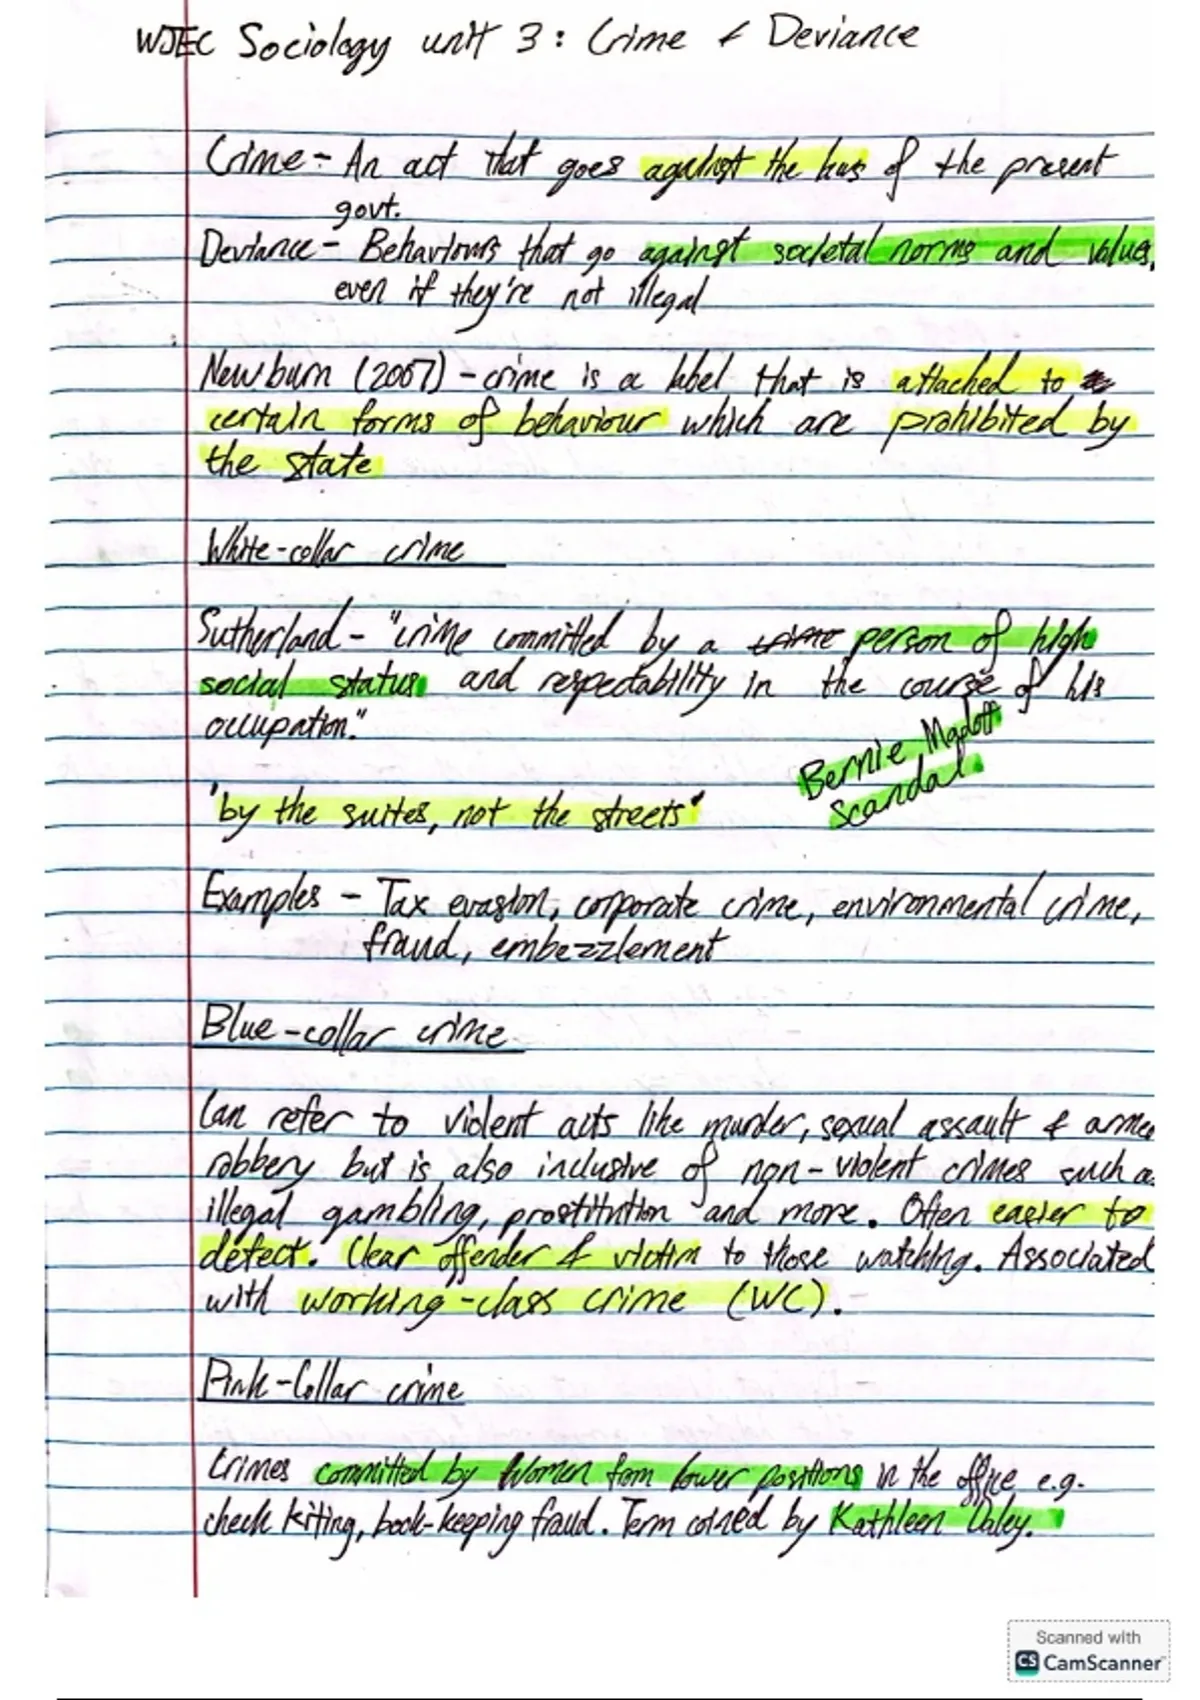 WJEC Sociology unit 3: Crime & Deviance
Crime - An act that goes against the laws of the present
govt.
Deviance - Behaviours that go against societal norms and values,
even if they're not illegal
Newburn (2007) - crime is a label that is attached to
certain forms of behaviour which are prohibited by
the state
White-collar crime
Sutherland - "crime committed by a crime person of high
social status and respectability in the course of his
occupation."
Bernie Madoff
Scandal.
"by the suites, not the streets"
Examples - Tax evasion, corporate crime, environmental crime,
fraud, embezzlement
Blue-collar crime
Can refer to violent acts like murder, sexual assault & arme
robbery but is also inclusive of non-violent crimes such a
illegal gambling, prostitution and more. Often easier to
detect. Clear offender & victim to those watching. Associated
with working-class crime (WC).
Pink-Collar crime
Crimes committed by Women from lower positions in the office e.g.
check kiting, book-keeping fraud. Term coined by Kathleen Daley.
Scanned with
CS CamScanner